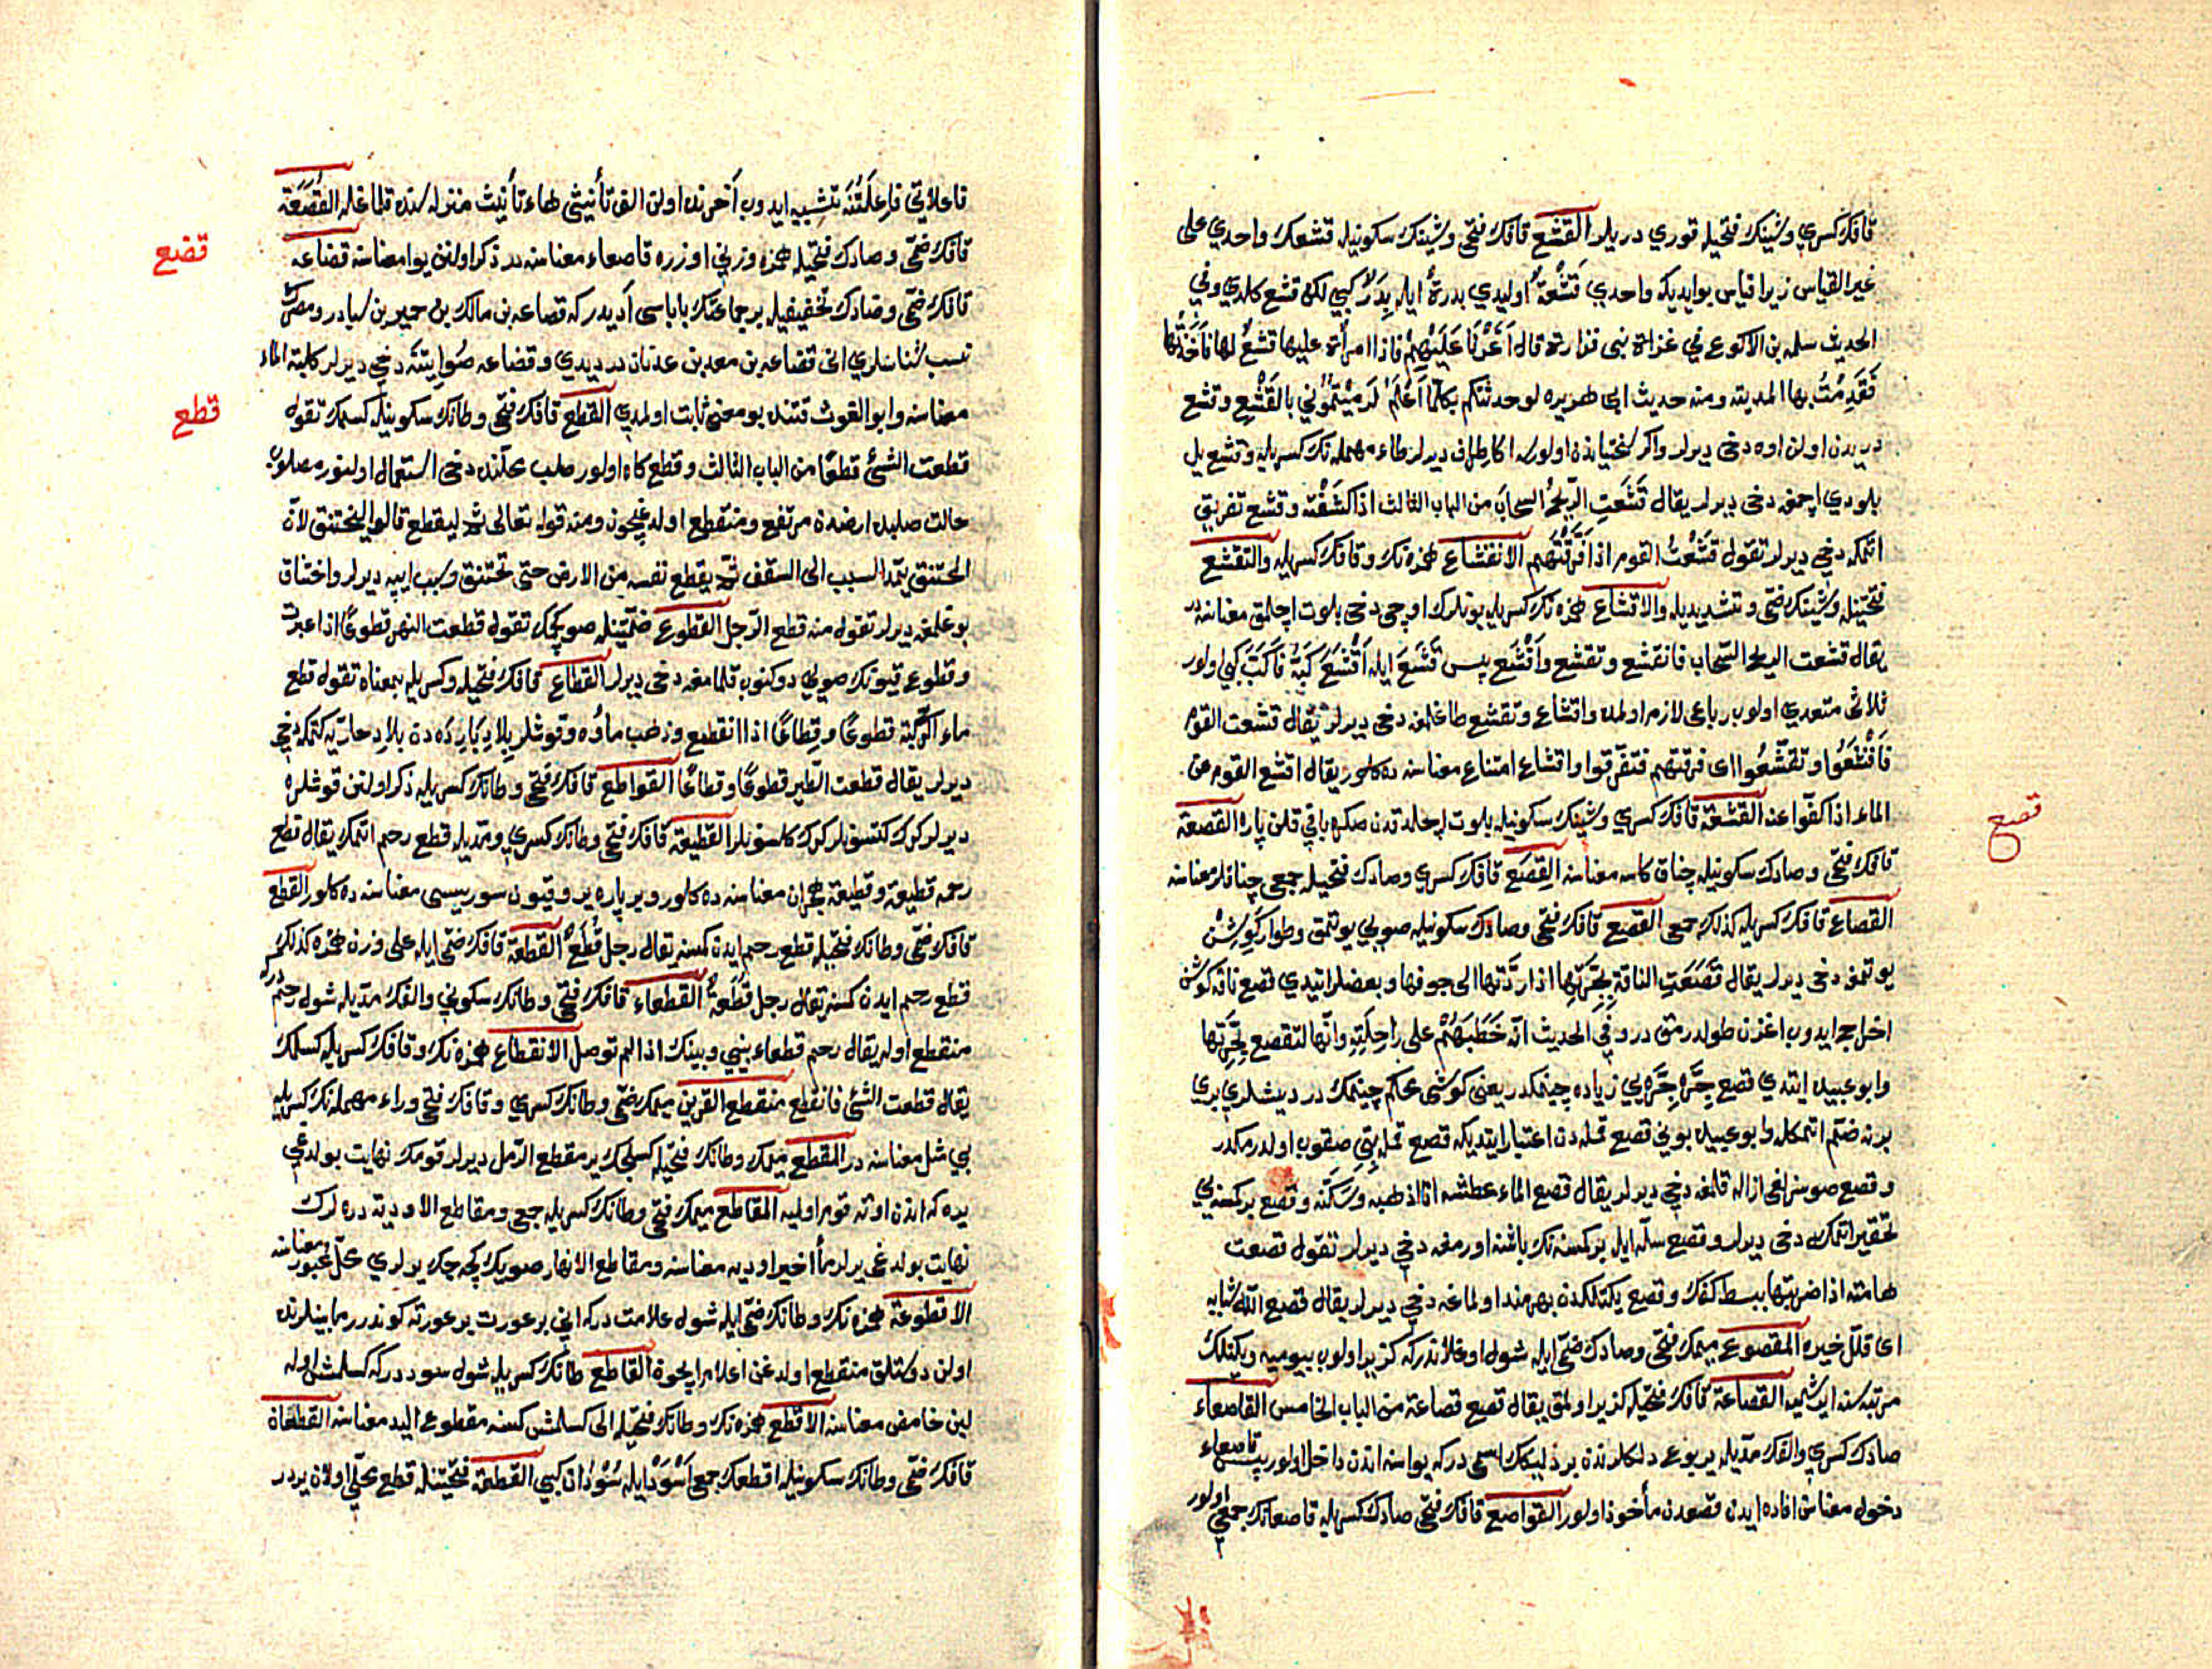 قافك كسري وشينك فتحيله قوري دريلر القشع قافك فتحى وشينك سكونيله قشعك واحدي على
غير القياس زيرا قياس بو ايديكه واحدي قَشْعَةٌ اوليدي بدرة ايله بِدَرٌ كبي لكن قشع كلدي وفي
الحديث سلمه بن الاكوع في غزاة بنى فزارة قال اَغَرْنَا عَلَيْهِمْ فاذا امرأة عليها قشع لها فَاَخَذْتُها
فَقَدِمْتُ بها المدينة ومنه حديث ابى هريره لو حدثتكم بكل ما اَعْلَمُ لَرَمَيْتُمُوني بالقَشْعِ وقشع
دريدن اولن اوه دخى ديرلر واكر سختياندن اولورسه اكا طراف ديرلر طاء مهمله نك كسريله وقشع يل
بلودي اچمغه دخى ديرلر يقال قَشَعَتِ الرّيحُ السحابَ من الباب الثالث اذا كشفته وقشع تفريق
اتمكه دخى ديرلر تقول قَشَعْتُ القوم اذا فَرَّقْتَهم الانقشاع همزه نك وقافك كسريله والتقشع
فتحتيله وشينك ضمّى وتشديديله والاقشاع همزه نك كسريله بونلرك اوچى دخى بلوت اچلمق معناسنه در
يقال قشعت الريح السّحاب فانقشع وتقشع واَقْشَعَ پس قَشَعَ ايله اَقْشَعَ كَبَّهُ فَاَكَبَّ كبي اولور
ثلاثى متعدي اولوب رباعى لازم اولمده واقشاع وتقشع طاغلمغه دخى ديرلر يقال قشعت القوم
فَاَقْشَعُوا وتقشّعُوا اى فرقتهم فتفرقوا واقشاع امتناع معناسنه ده كلور يقال اقشع القوم عن
الماء اذا كفّوا عنه القشعة قافك كسري وشينك سكونيله بلوت اچلدقدن صكره باقي قلن پاره القصعة
قافك فتحى وصادك سكونيله چناق كاسه معناسنه القِصَع قافك كسري وصادك فتحيله جمعى چناقلر معناسنه
القصاع قافك كسريله كذلك جمعى القصع قافك فتحى وصادك سكونيله صويي يوتمق وطوار كَوِشْن
يوتمغه دخى ديرلر يقال قَصَعَتِ الناقة بِجِرَّتِها اذا ردّتها الى جوفها وبعضلر ايتدي قصع ناقه كوشن
اخراج ايدوب اغزن طولدرمق در وفي الحديث انّه خَطَبَهُمْ على رَاحِلَتِهِ وانّها لتقصع بِجِرَّتها
وابو عبيد ايتدي قصع جِرَّه جِرَّه يي زياده چينمكدر يعنى كوشى محكم چينمك در ديشلري بري
برنه ضتم اتمكله ابو عبيد بوني قصع قمله دن اعتبار ايتديكه قصع قمله بتى صقوب اولدرمكدر
وقصع صوسزلغى ازاله قلمغه دخى ديرلر يقال قصع الماء عطشه اى اذهبه وسَكّنه وقصع بر كمسنه يي
تحقير اتمكه دخى ديرلر وقصع سلّه ايله بر كمسنه نك باشنه اورمغه دخى ديرلر تقول قصعت
هامته اذا ضربتها ببسط كفك وقصع يكتلكدن بهرمند اولمامغه دخى ديرلر يقال قصع الله شبابه
اى قلّل خيره المقصوع ميمك فتحى وصادك ضمّى ايله شول اوغلاندركه كزيرا اولوب بيوميه ويكتلك
مرتبه سنه ايرشميه القصاعة قافك فتحيله كزيرا اولمق يقال قصع قصاعة من الباب الخامس القاصعاء
صادك كسري والفك مدّيله يربوع دلكلرندن بر دليكك اسمى دركه يواسنه اندن داخل اولور پس قاصعاء
دخول معناسن افاده ايدن قصعدن مأخوذ اولور القواصع قافك فتحى صادك كسريله قاصعانك جمعى اولور
قصع
فاعلاتي فاعلَتُنَه تشبيه ايدوب آخرنده اولن الف تأنيثى هاء تأنيث منزله سنده قلماغله القُصَعَة
قافك ضمّى وصادك فتحيله همزه وزني اوزره قاصعاء معناسنه در ذكر اولنن يوا معناسنه قضاعه
قافك ضمّى وضادك تخفيفيله بر جماعتك باباسى آديدركه قضاعه بن مالك بن حمير بن سبا در ومضرك
نسب شناسلري انى قضاعه بن معد بن عدنان در ديدي وقضاعه صُو ايتنَه دخى ديرلر كلبة الماء
معناسنه وابو الغوث قتنده بو معنى ثابت اولمدي القطع قافك فتحى وطانك سكونيله كسمك تقول
قطعت الشئ قطعًا من الباب الثالث وقطع كاه اولور صلب محلّنده دخى استعمال اولنور مصلوب
حالت صلبده ارضدن مرتفع ومنقطع اولدغيچون ومنه قوله تعالى ثمّ ليقطع قالوا ليختنق لانّ
المختنق يمّد السبب الى السقف ثمّ يقطع نفسه من الارض حتى تختنق وسبب ايپه ديرلر واختناق
بوغلمغه ديرلر تقول منه قطع الرّجل القطوع ضمّتينله صو كچمك تقول قطعت النهر قطوعًا اذا عبرت
وقطوع قيونك صويي دوكنوب قلمامغه دخى ديرلر القطاع قافك فتحيله وكسريله بمعناه تقول قطع
ماء الركيّة قطوعًا وقِطاعًا اذا انقطع وذهب ماؤه وقوشلر بِلادِ بَارِدَه دن بلاد حارّيه كتمكه دخى
ديرلر يقال قطعت الطّير قطوعًا وقطاعًا القواطع قافك فتحى وطانك كسريله ذكر اولنن قوشلره
ديرلر كرك كتسونلر كرك كلسونلر القطيعة قافك فتحى وطانك كسري ومدّيله قطع رحم اتمك يقال قطع
رحمه قطيعة وقطيعة هجران معناسنه ده كلور وير پاره ير وقيون سوريسى معناسنه ده كلور القطع
قافك ضمّى وطانك فتحيله قطع رحم ايدن كمسنه يقال رجل قُطَعٌ القطعة قافك ضمّى ايله على وزن همزه كذلك
قطع رحم ايدن كمسنه يقال رجل قُطَعَةٌ القطعاء قافك فتحى وطانك سكوني والفك مدّيله شول رحم دركه
منقطع اوله يقال رحم قطعاء بيني وبينك اذا لم توصل الانقطاع همزه نك وقافك كسريله كسلمك
يقال قطعت الشئ فانقطع منقطع القرين ميمك ضمّى وطانك كسري وقافك فتحى وراء مهمله نك كسريله
بي شل معناسنه در المقطع ميمك وطانك فتحيله كسلجك ير مقطع الرّمل ديرلر قومك نهايت بولدغى
يره كه اندن اوته قوم اولميه المقاطع ميمك فتحى وطانك كسريله جمعى ومقاطع الاوديه دره لرك
نهايت بولدغى يرلر مأاخير اوديه معناسنه ومقاطع الانهار صويك كچه جك يرلري محلّ عبور معناسنه
الاقطوعة همزه نك وطانك ضمّى ايله شول علامت دركه انى بر عورت بر عورته كوندرر مابينلرنده
اولن دوستلق منقطع اولدغن اعلام ايچون القاطع طانك كسريله شول سود دركه كسلمش اوله
لبن خامض معناسنه الاقطع همزه نك وطانك فتحيله الى كسلمش كمسنه مقطوع اليد معناسنه القطعان
قافك ضمّى وطانك سكونيله اقطعك جمعى اَسْوَد ايله سُودَان كبي القطعة فتحتينله قطع محلّي اولان يردر
قضع
قطع